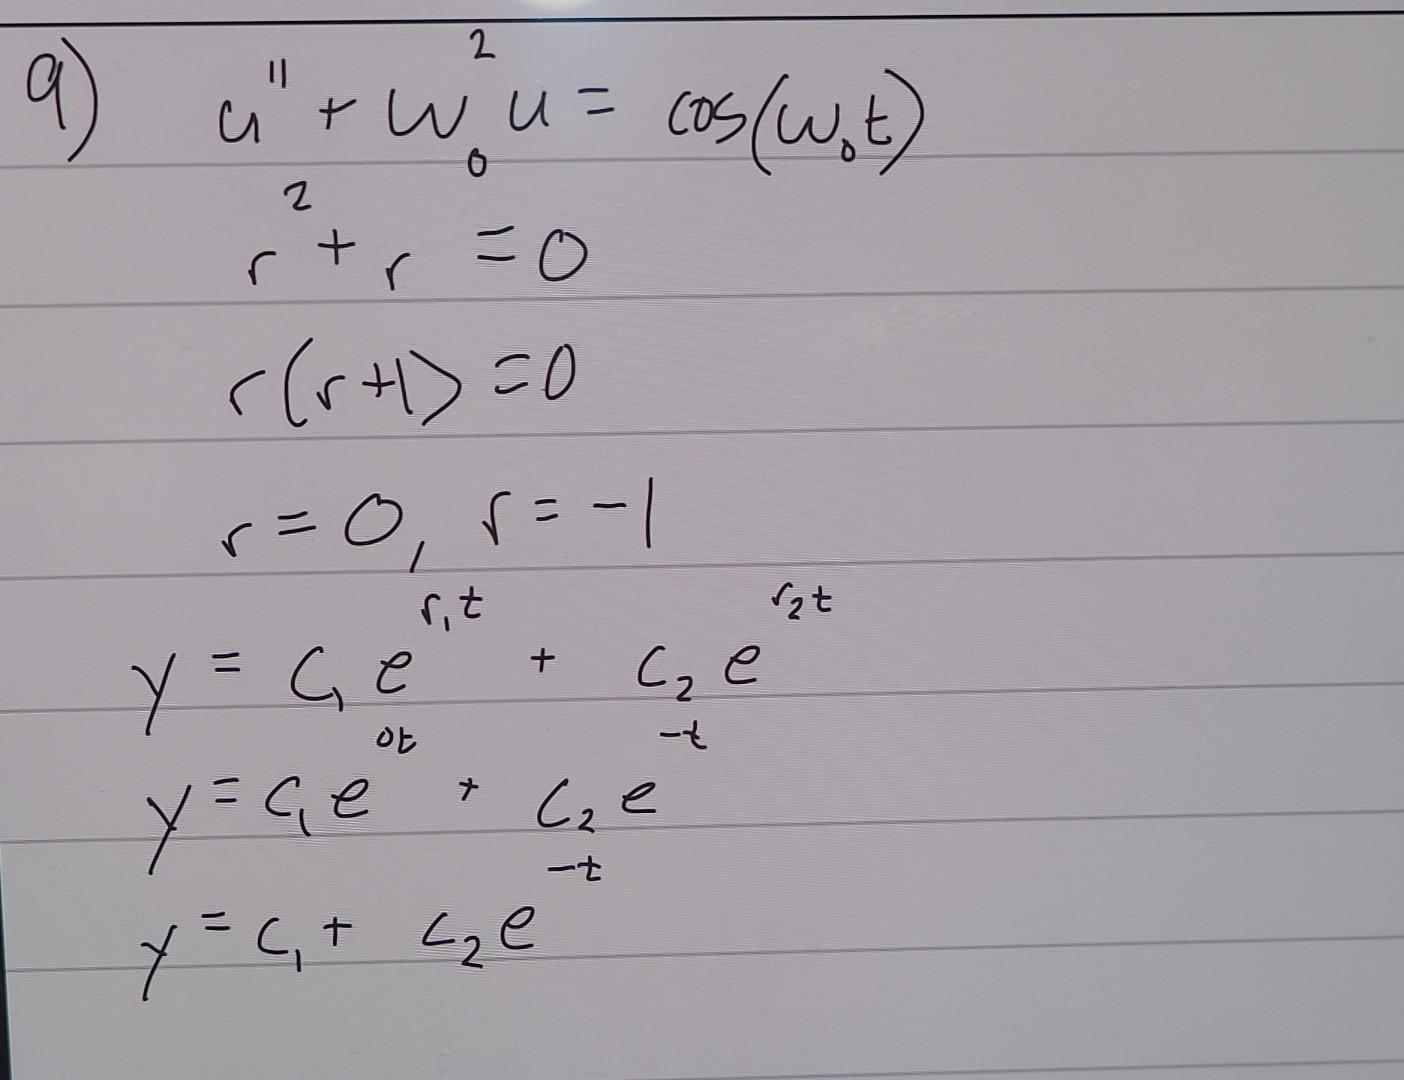 9) u'' + w₀² u = cos(w₀t)
r² + r = 0
r(r+1) = 0
r = 0, r = -1
y = c₁ e^(r₁t) + c₂ e^(r₂t)
y = c₁ e^(0t) + c₂ e^(-t)
y = c₁ + c₂ e^(-t)